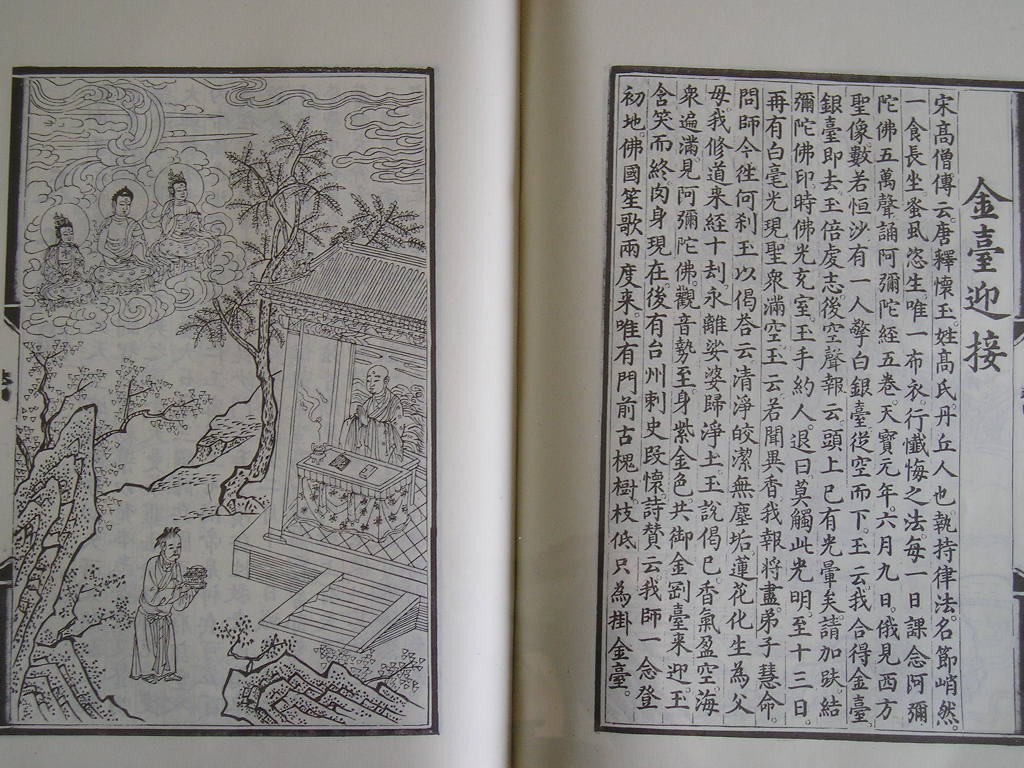 金臺迎接
宋高僧傳云。唐釋懷玉。姓高氏。丹丘人也。執持律法。名節峭然。
一食長坐。蚤虱恣生。唯一布衣。行懺悔之法。每一日課念阿彌
陀佛五萬聲。誦阿彌陀經五卷。天寶元年。六月九日。俄見西方
聖像。數若恒沙。有一人擎白銀臺。從空而下。玉云。我合得金臺。
銀臺即去。玉倍虔志。後空聲報云。頭上已有光暈矣。請加趺結
彌陀佛印。時佛光充室。玉手約人。退曰。莫觸此光明。至十三日。
再有白毫光現。聖衆滿空。玉云。若聞異香。我報將盡。弟子慧命。
問師今徃何刹。玉以偈答云。清淨皎潔無塵垢。蓮花化生為父
母。我修道来經十刦。永離娑婆歸淨土。玉說偈已。香氣盈空。海
衆遍滿。見阿彌陀佛。觀音勢至。身紫金色。共御金剛臺来迎。玉
含笑而終。肉身現在。後有台州刺史段懷。詩賛云。我師一念登
初地。佛國笙歌兩度来。唯有門前古槐樹。枝低只為掛金臺。